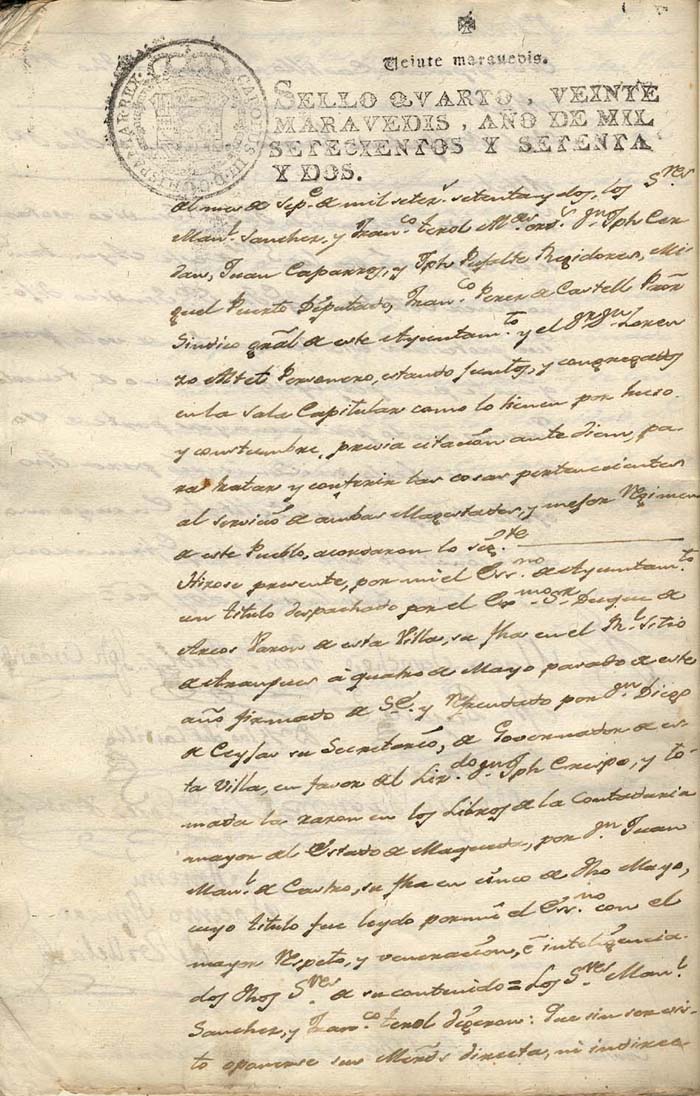 Veinte marauedis.
SELLO QVARTO, VEINTE
MARAVEDIS, AÑO DE MIL
SETECIENTOS Y SETENTA
Y DOS.
CAROLUS III D G HISPANIAR REX
el mes de Sepe. de mil setes. setenta y dos, los Sres
Manl. Sanchez, y Franco. terol ords. Dn Jph Cer
dan, Juan Caparros, y Jph Regidores, Mi
guel Puerto Diputado, Franco. Perez de Castell
Sindico gral de este Ayuntamto. y el Dr. Dn Loren
zo Personero, estando juntos, y congregados
en la sala Capitular como lo tienen por
y constumbre, previa citacion antediem, pa
ra tratar y conferir las cosas pertenecientes
al servicio de ambas Magestades, y mejor Regimen
de este Pueblo, acordaron lo sigte.
Hizose presente, por mi el Essno. de Ayuntamto.
un titulo despachado por el Exmo. Sr. Duque de
Arcos Varon de esta Villa, su fha en el Rl. Sitio
de Aranjues a quatro de Mayo pasado de este
año firmado de S.E. y Refrendado por Dn. Diego
de su Secretario, de Governador de es
ta Villa, en favor del Lizdo. Dn Jph Crespo, y to
mada la razon en los Libros de la Contaduria
mayor del Estado de Maqueda, por Dn. Juan
Manl. de Castro, su fha en cinco de dho Mayo,
cuyo titulo fue leydo por mi el Essno. con el
mayor Respeto, y veneracion, è inteligencia
dos dhos Sres. de su contenido = Los Sres Manl.
Sanchez, y Franco. terol dixeron: Que sin ser vis
to oponerse sus Merds directa, ni indirec